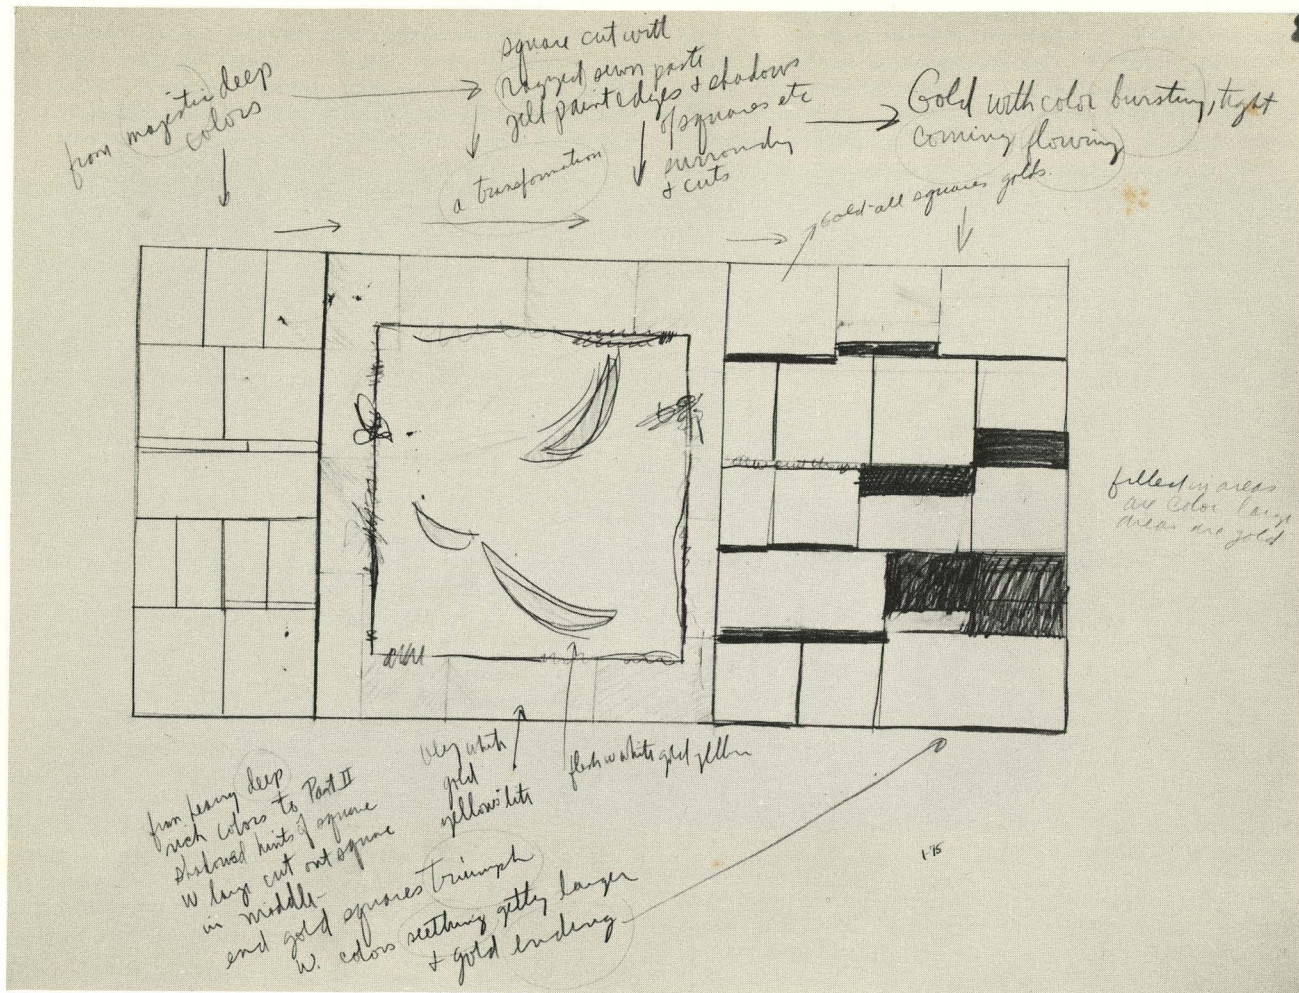 from majestic deep
colors
square cut with
ragged sewn parts
jell paint edges + shadows
of squares etc
surrounding
+ cuts
a transformation
Gold with color bursting, tight
coming flowing
Gold-all squares golds.
filled in areas
are color large
areas are gold
very white
gold
yellows lite
flesh w white gold yellow
from heavy deep
rich colors to Part II
shadowed hints of square
w large cut out square
in middle-
end gold squares triumph
w. colors seething getting larger
+ gold ending
1-75